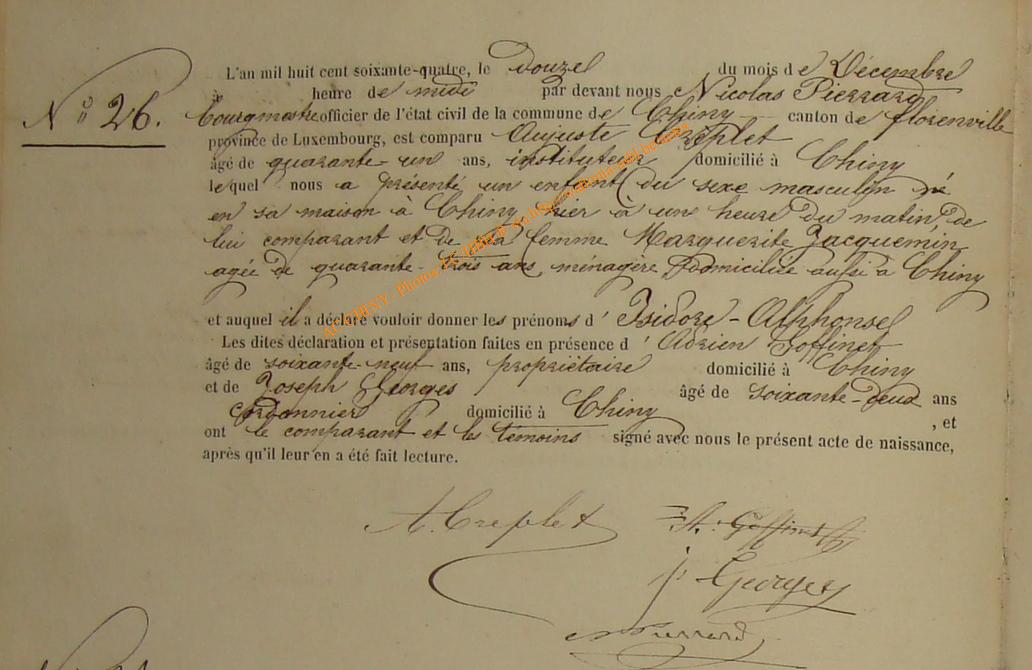 N° 26.
L'an mil huit cent soixante-quatre, le douze du mois de Décembre
à heure de midi par devant nous Nicolas Pierrard
bourgmestre officier de l'état civil de la commune de Chiny canton de florenville
province de Luxembourg, est comparu Auguste Creplet
âgé de quarante-un ans, instituteur domicilié à Chiny
lequel nous a présenté un enfant du sexe masculin né
en sa maison à Chiny hier à une heure du matin, de
lui comparant et de sa femme Marguerite Jacquemin
agée de quarante-trois ans, ménagère domiciliée aussi à Chiny
et auquel il a déclaré vouloir donner les prénoms d' Isidore-Alphonse
Les dites déclaration et présentation faites en présence d' Adrien Goffinet
âgé de soixante-neuf ans, propriétaire domicilié à Chiny
et de Joseph Georges âgé de soixante-deux ans
Cordonnier domicilié à Chiny , et
ont le comparant et les témoins signé avec nous le présent acte de naissance,
après qu'il leur en a été fait lecture.
A. Creplet A. Goffinet
j. Georges
Pierrard